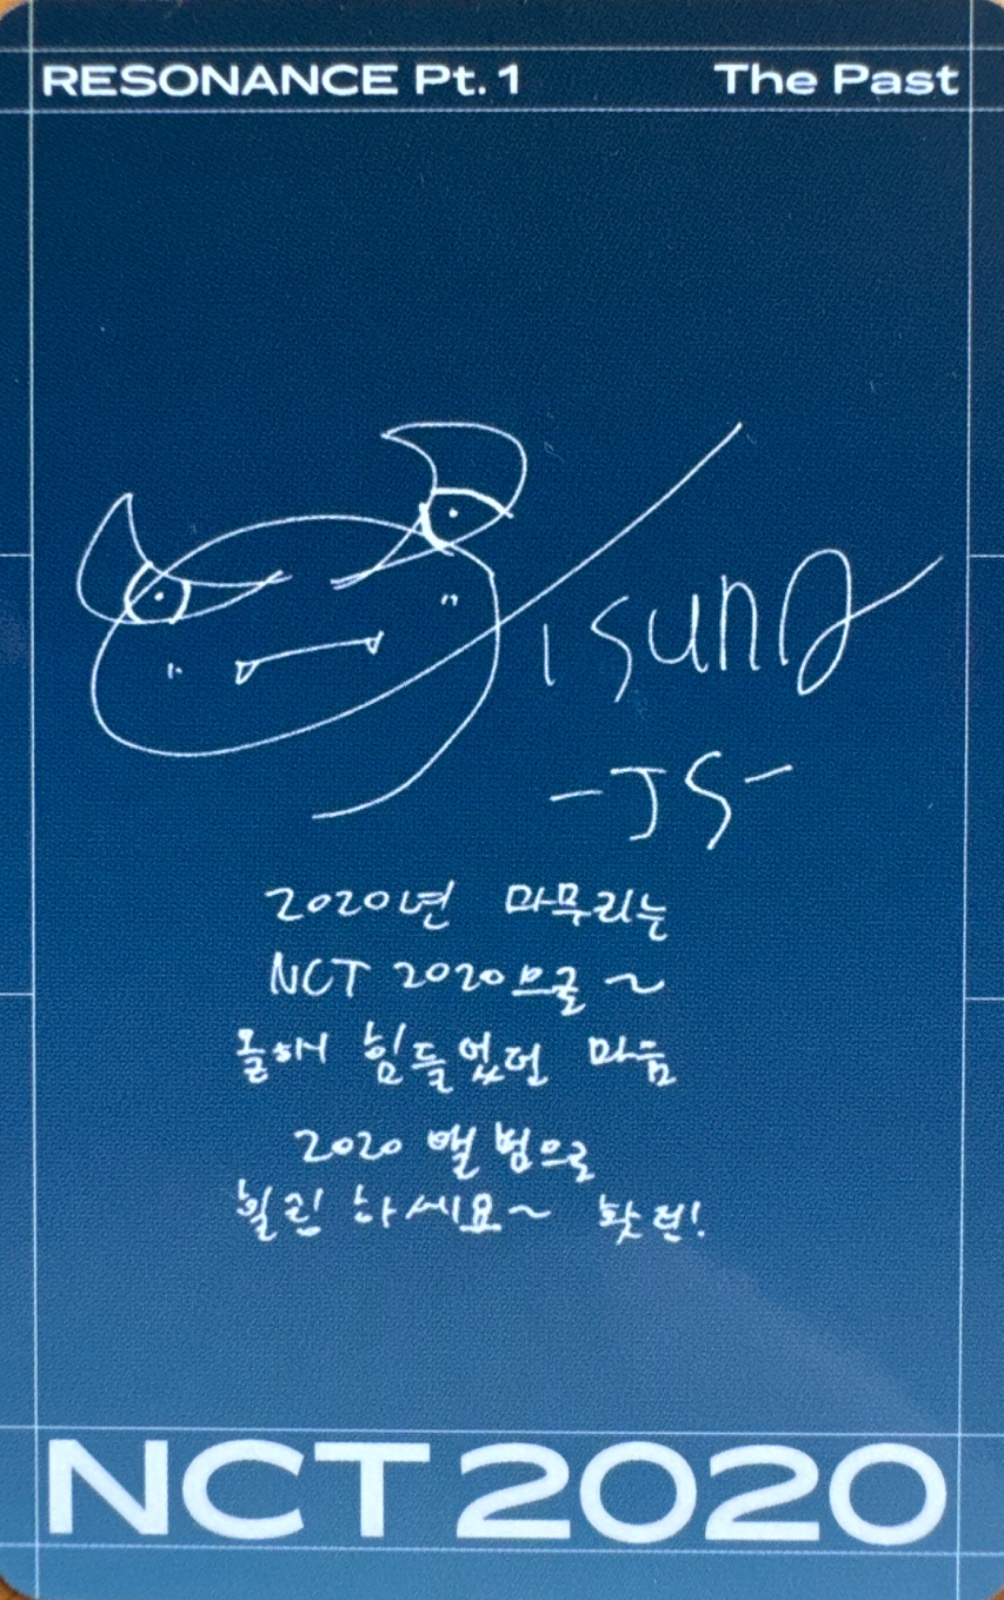 RESONANCE Pt. 1
The Past
Jisung
-JS-
2020년 마무리는
NCT 2020으로~
올해 힘들었던 마음
2020 앨범으로
힐링 하세요~ 홧팅!
NCT 2020